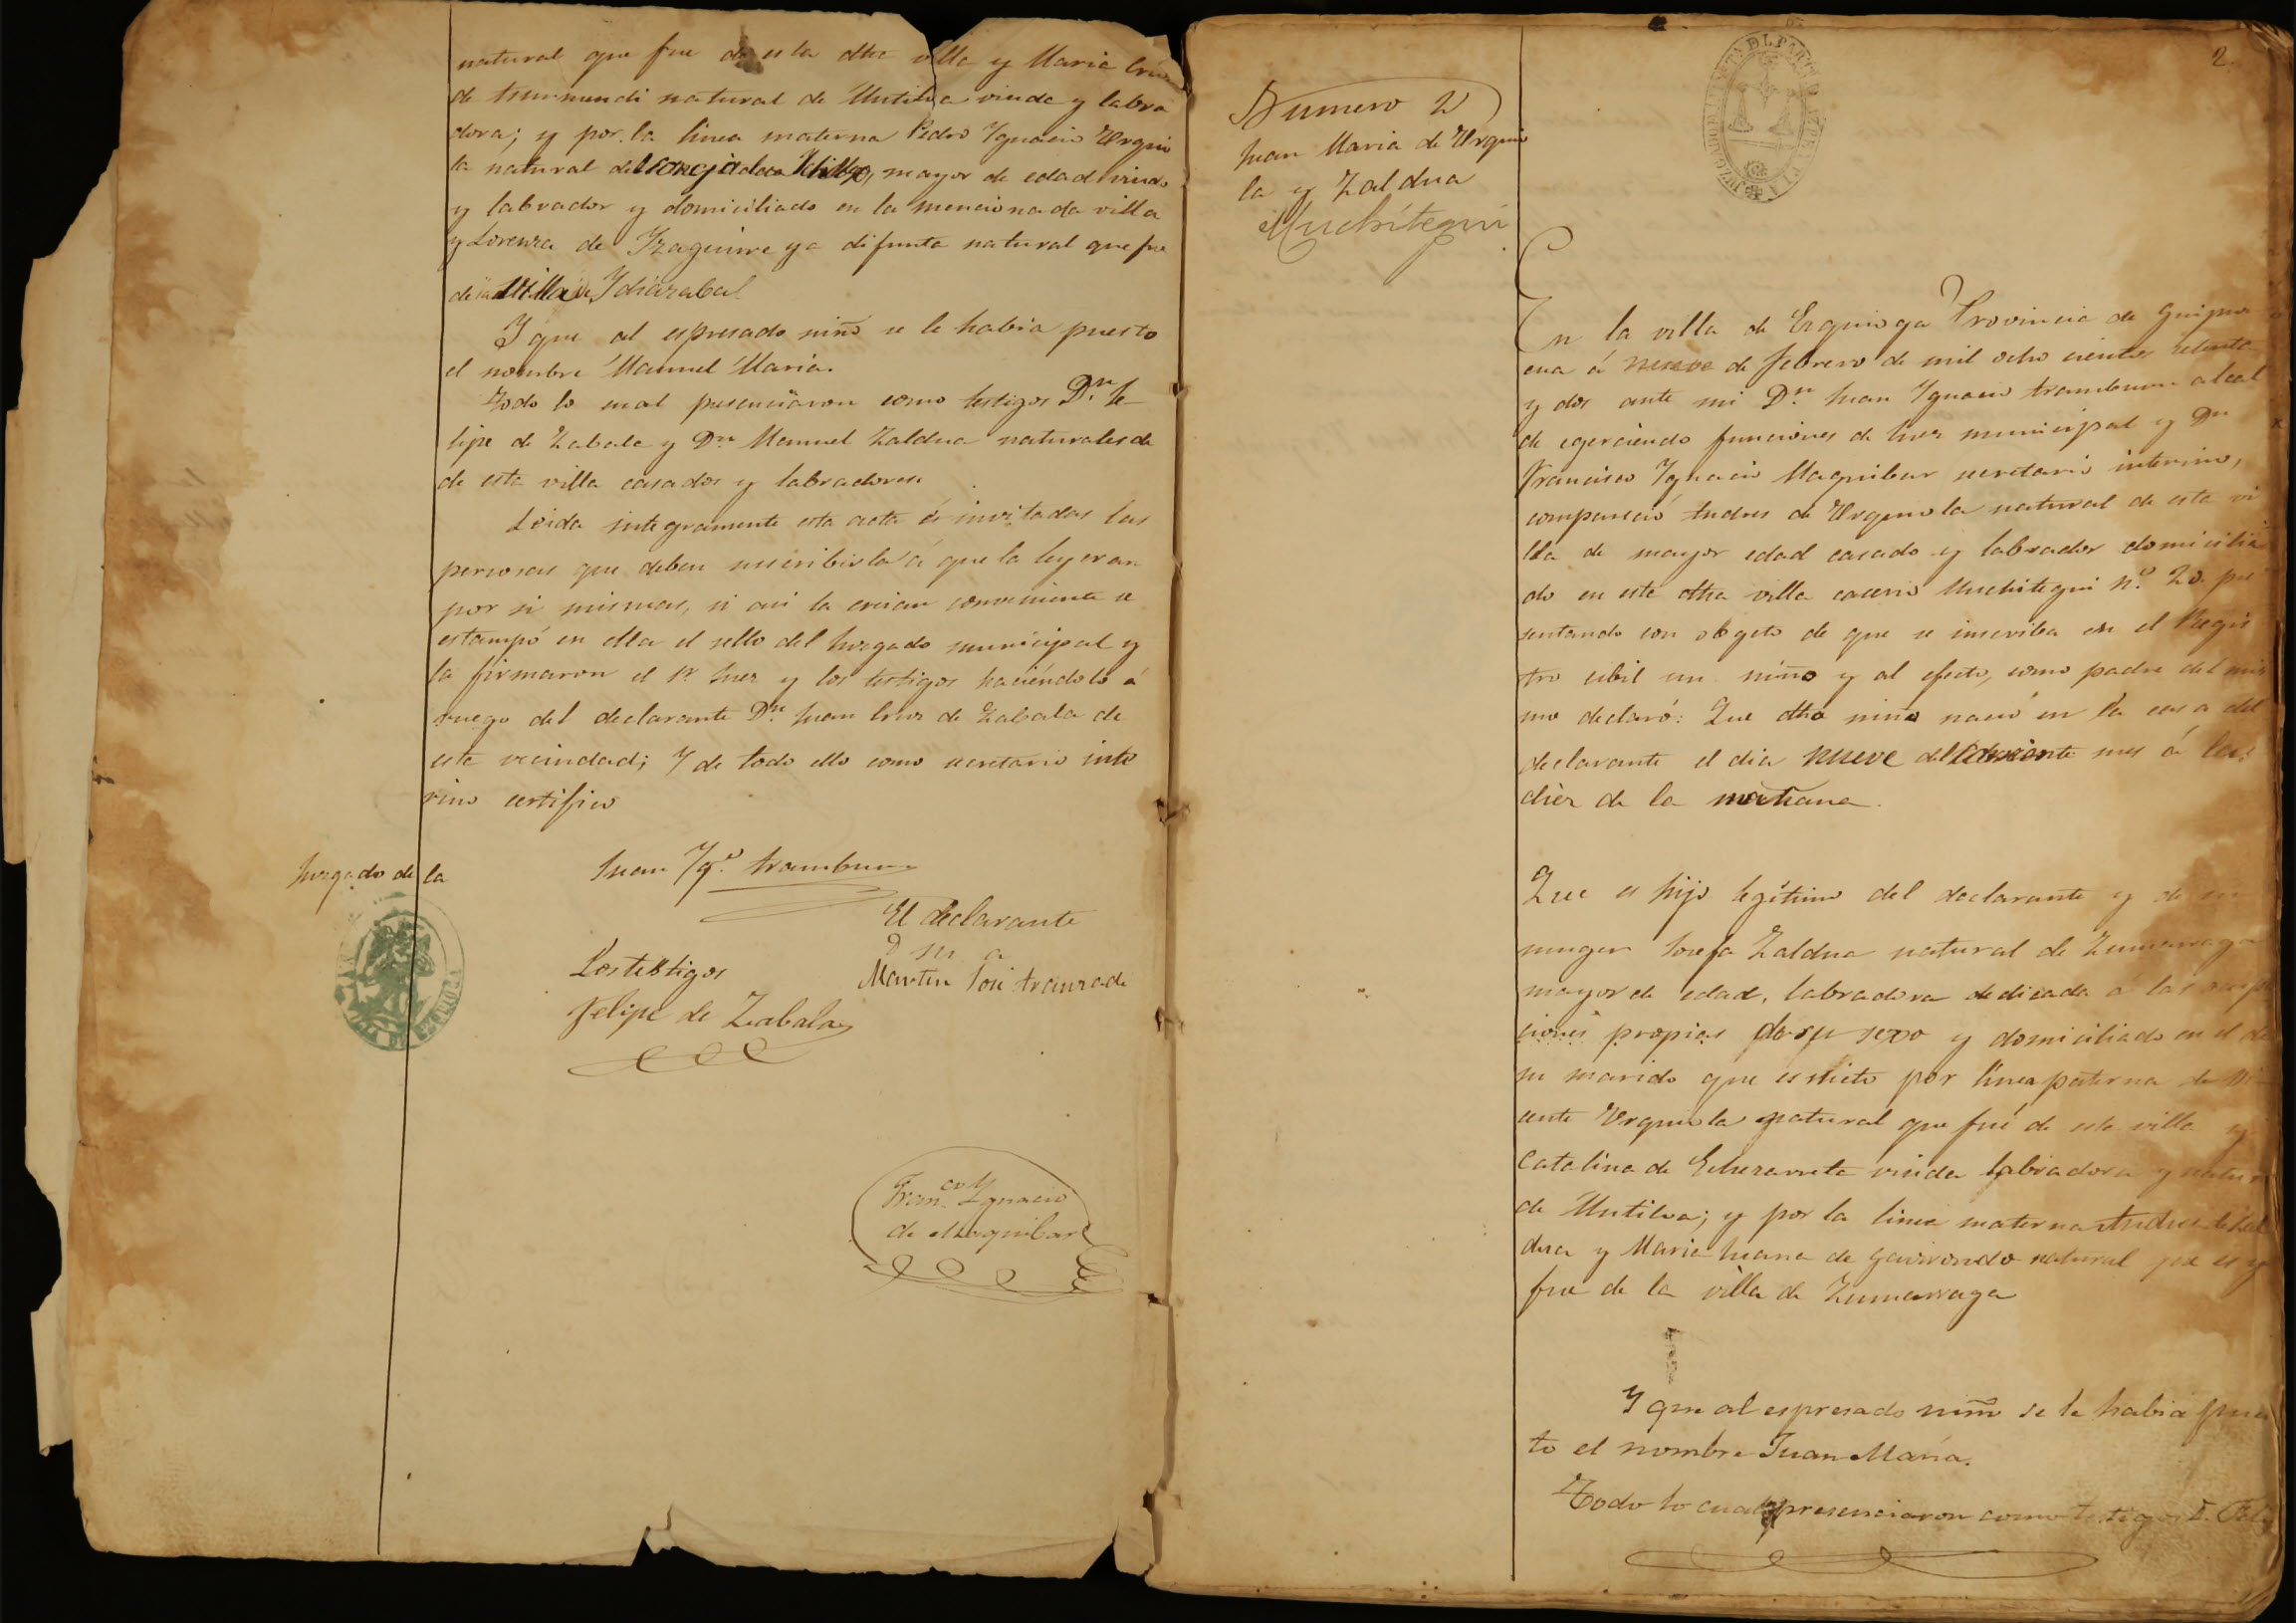 natural que fue de esta dha villa y Maria Cruz
de Insumendi natural de Mutiloa viuda y labra
dora; y por la linea materna Pedro Ygnacio Urquio
la natural del mayor de edad viudo
y labrador y domiciliado en la mencionada villa
y Lorenza de Yzaguirre ya difunta natural que fue
de la Villa de Ydiazabal
Y que al espresado niño se le habia puesto
el nombre Manuel Maria.
Todo lo cual presenciaron como testigos Dn. Fe-
lipe de Zabala y Dn Manuel Zaldua naturales de
de esta villa casados y labradores
Leida integramente esta acta é invitadas las
personas que deben suscribirla á que la leyeran
por si mismas, si asi la creian conveniente se
estampó en ella el sello del Juzgado municipal y
la firmaron el Sr Juez y los testigos haciéndolo á
ruego del declarante Dn. Juan Cruz de Zabala de
esta vecindad; Y de todo ello como secretario inte
rino certifico
Juzgado de la
Juan Ygo. Aramburu
El declarante
Los testigos
Martin José
Felipe de Zabala
Franco. Ygnacio
de Maguibar
2
Numero 2
Juan Maria de Urquio
la y Zaldua
Muchitegui
En la villa de Ezquioga Provincia de Guipuz
cua á nueve de febrero de mil ocho cientos setenta
y dos ante mi Dn. Juan Ygnacio Aramburu alcal
de egerciendo funciones de Juez municipal y Dn
Francisco Ygnacio Maguibar secretario interino,
compareció Andres de Urquiola natural de esta vi
lla de mayor edad casado y labrador domicilia
do en esta dha villa caserio Muchitegui N.º 20 pre
sentando con obgeto de que se inscriba en el Regis
tro cibil un niño y al efecto, como padre del mis
mo declaró: Que dho niño nació en la casa del
declarante el dia nueve del corriente mes á las
diez de la mañana.
Que es hijo legítimo del declarante y de su
muger Josefa Zaldua natural de Zumarraga
mayor de edad, labradora dedicada á las ocupa
ciones propias de su sexo y domiciliado en el de
su marido que es nieto por linea paterna de Vi
cente Urquiola natural que fué de esta villa y
Catalina de Echezarreta viuda labradora y natur
de Mutiloa; y por la linea materna Andres de Zal
dua y Maria Juana de Gavirondo natural que es y
fue de la villa de Zumarraga
Y que al espresado niño se le habia pues
to el nombre Juan María.
Todo lo cual presenciaron como testigos D. Feli